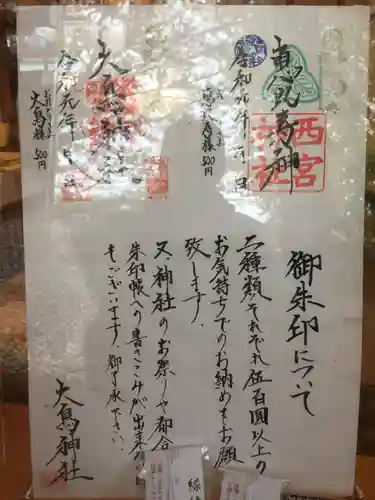 恵比寿神
西宮
神社
令和元年 月 日
恵比寿様
500円
大鳥神社
令和元年 月 日
大鳥様
500円
御朱印について
二種類、それぞれ伍百圓以上の
お気持ちでのお納めをお願
致します。
又、神社のお祭りや都合
朱印帳への書きこみが出来
もございます。御了承下さい。
大鳥神社